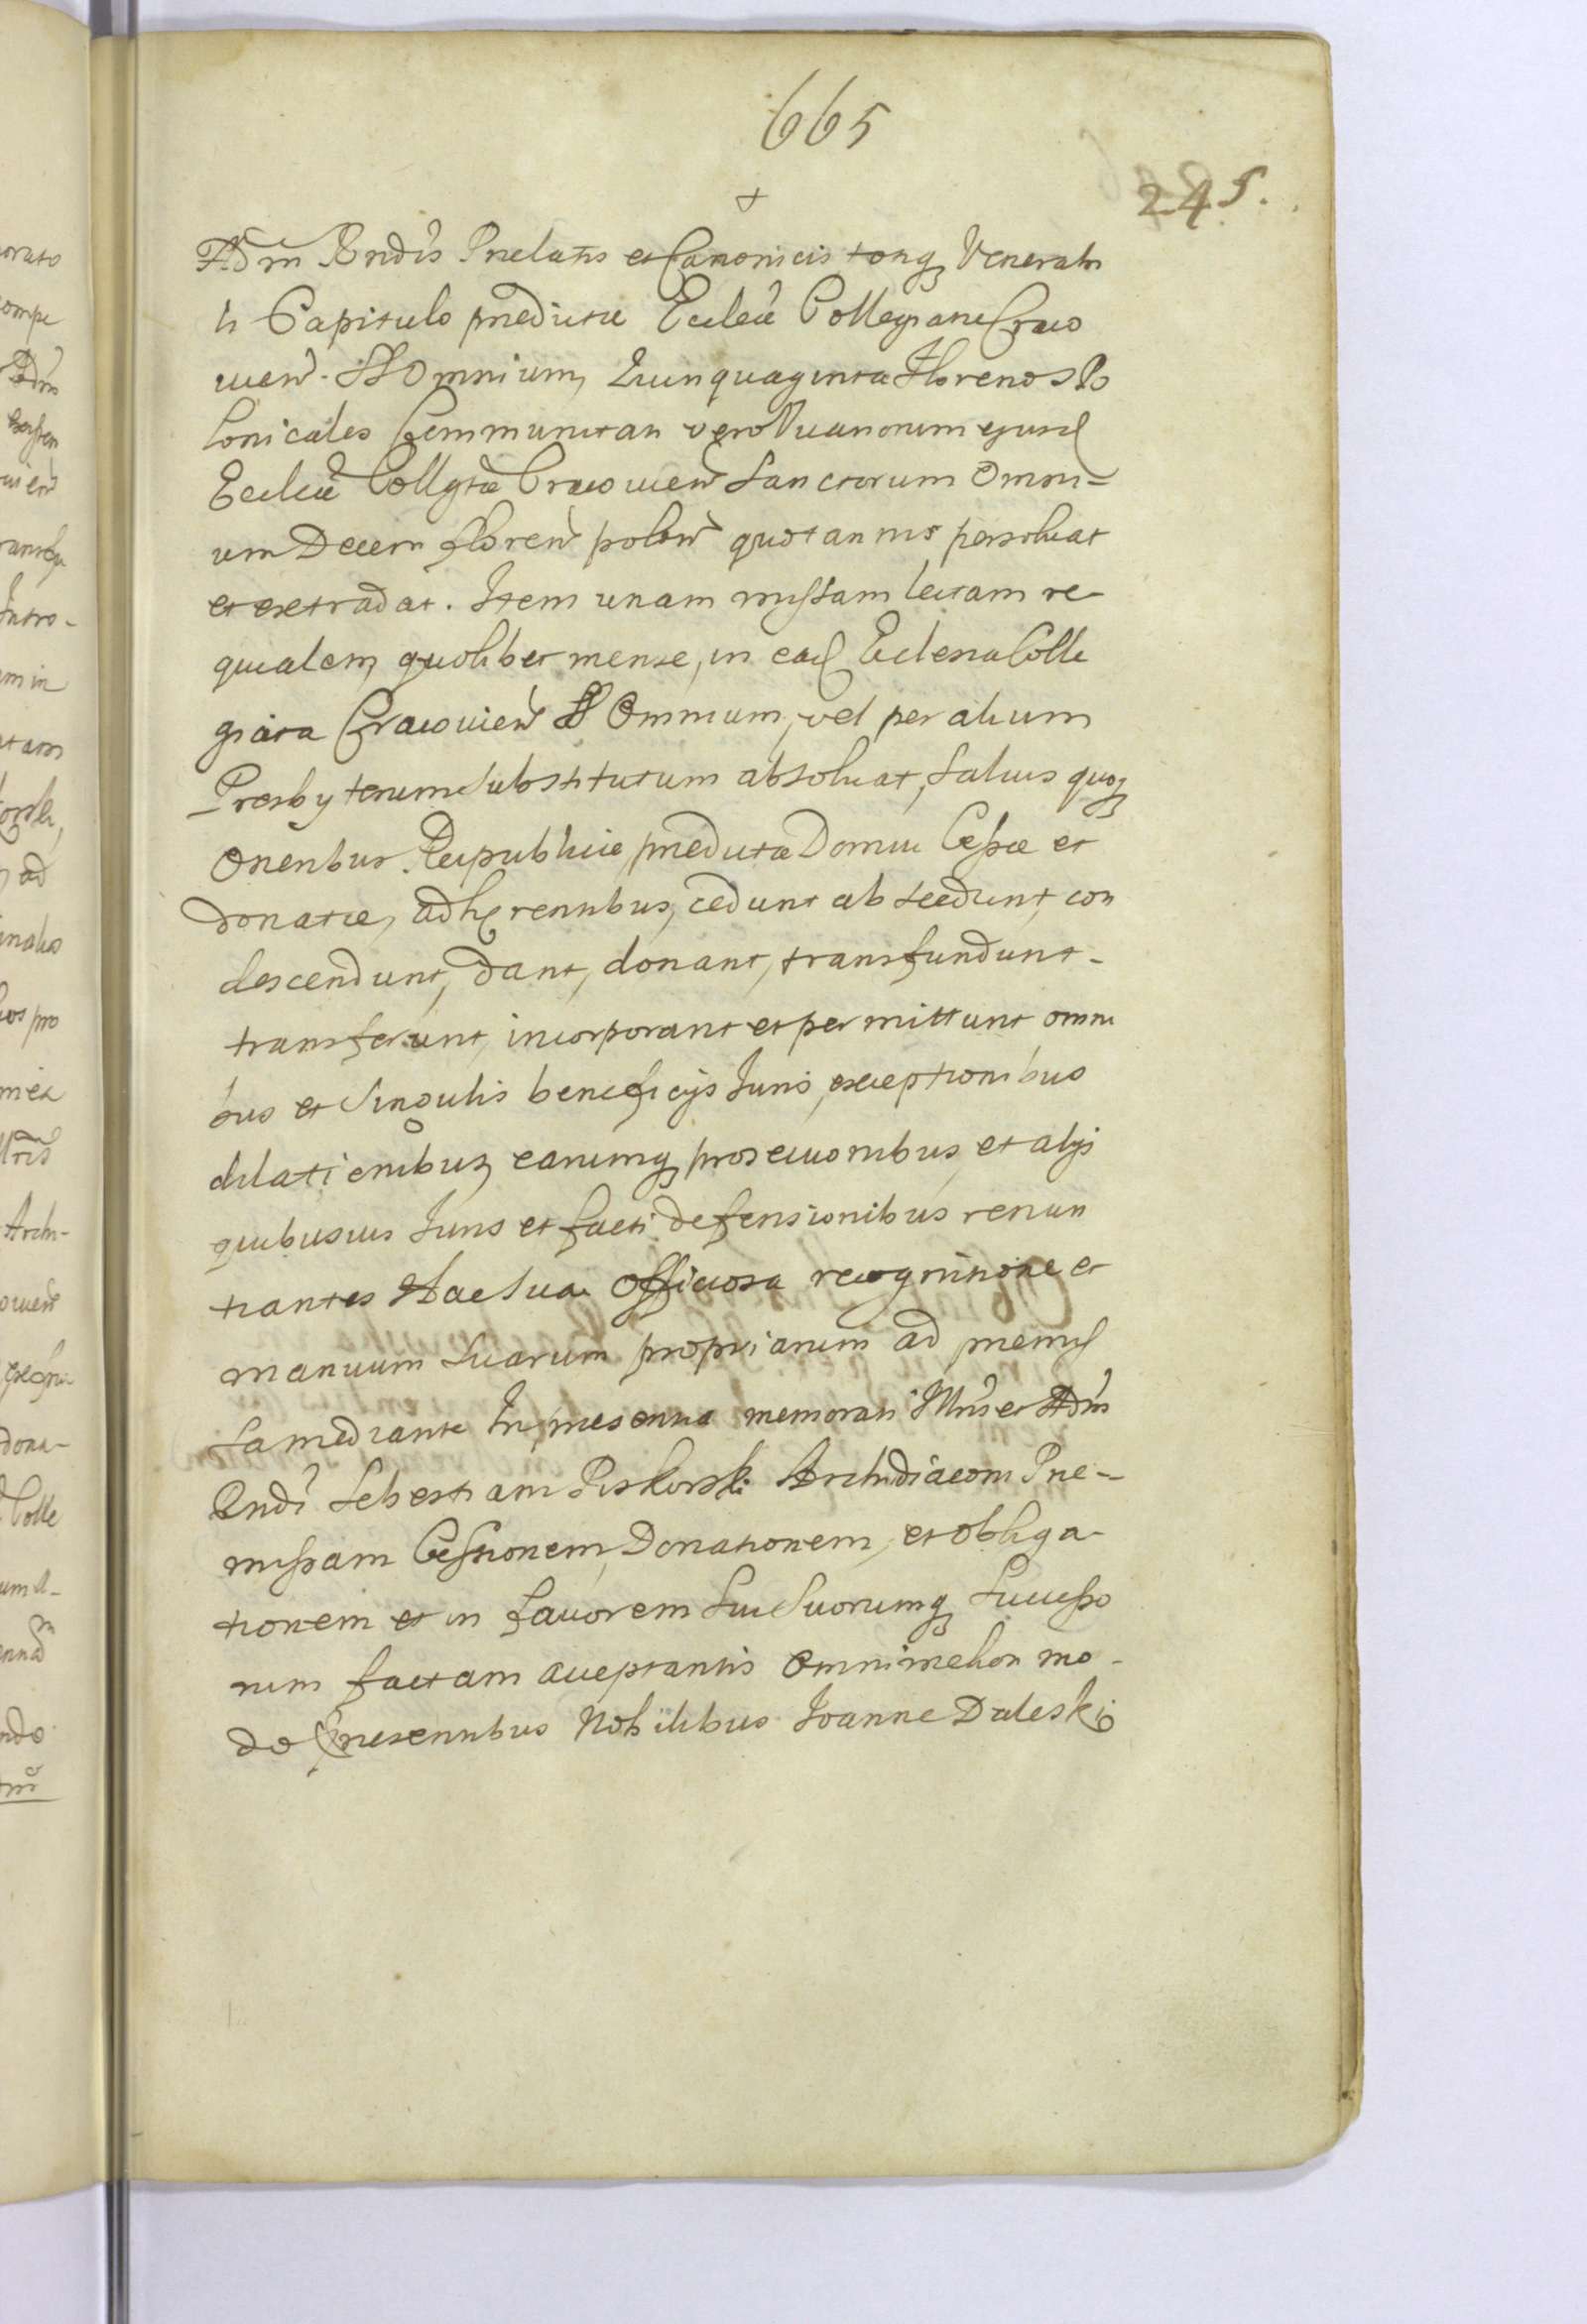 665
+
245.
Adm Rndis Praelatis et Canonicis totiq, Venerabi
li Capitulo praedictae Eccleae Collegiatae Craco
vien. SS Omnium, Quinquaginta Florenos Po
lonicales Communitati vero Vicariorum ejusd
Eccleae Collgtae Cracovien Sanctorum Omni=
um Decem floren polon quotannis persolvat
et extradat. Item unam missam lectam re-
quialem, quolibet mense, in ead Ecclesia Colle
giata Cracovien SS Omnium, vel per alium
Presbyterum Substitutum absolvat, Salvis quoq
Oneribus Reipublicae, praedictae Domui Cessae et
donatae, adhęrentibus, cedunt abscedunt, con
descendunt, dant, donant, transfundunt-
transferunt, incorporant et permittunt omni
bus et Singulis beneficijs Juris, exceptionibus
dilationibus, earumq prosecutionibus, et alijs
quibusvis Juris et facti defensionibus renun
tiantes Hac Sua Officiosa recognitione et
manuum Suarum propriarum ad praemis
sa mediante In praesentia memorati Illris et Adm
Rndi Sebestiani Piskorski Archidiaconi Prae-
missam Cessionem, Donationem, et obliga-
tionem et in favorem Sui Suorumq Successo
rum factam acceptantis Omni meliori mo-
do Praesentibus Nobilibus Joanne Daleski